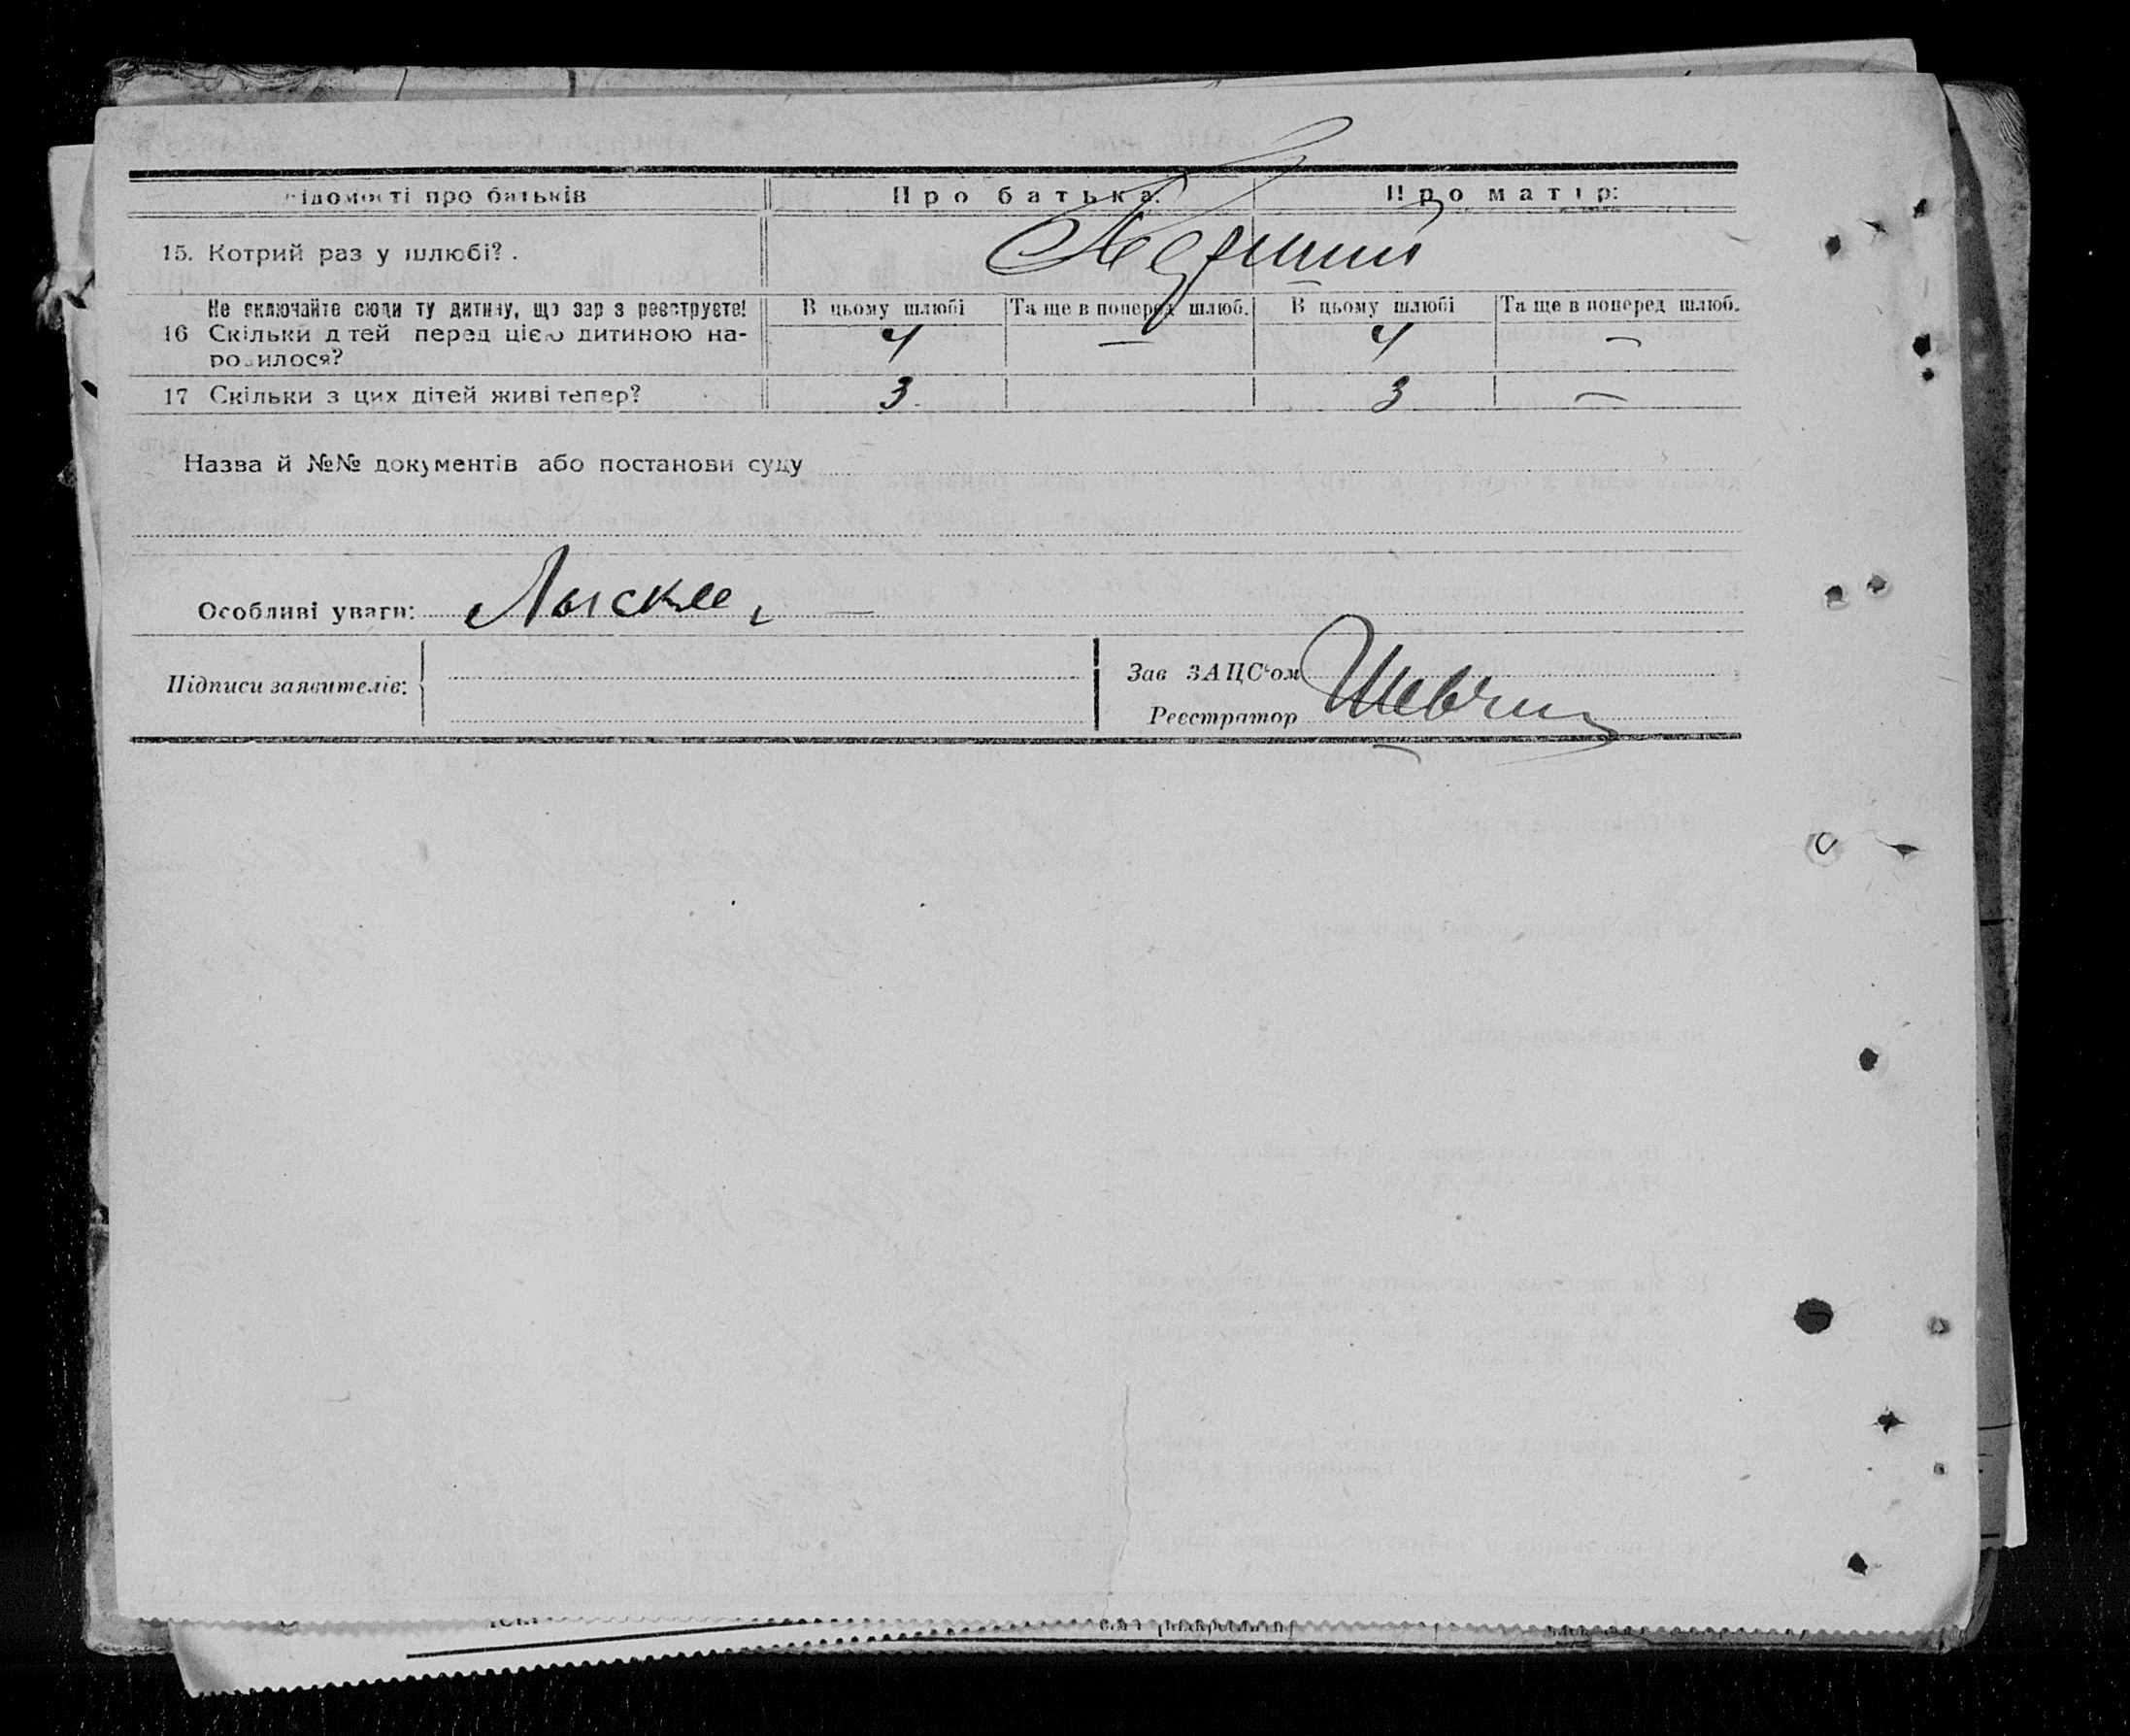 ідомості про батьків Про батька: Про матір:
15. Котрий раз у шлюбі?.
Не включайте сюди ту дитину, що зар з реєструєте! В цьому шлюбі Та ще в поперед шлюб. В цьому шлюбі Та ще в поперед шлюб.
16 Скільки д тей перед цією дитиною на- 4 — 4 —
родилося?
17 Скільки з цих дітей живі тепер? 3 3 —
Назва й №№ документів або постанови суду
Особливі уваги:
Підписи заявителів: Зав ЗАЦС'ом
Реєстратор